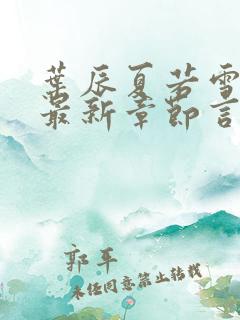 葉辰夏若雪
最新章節言
郭平
未任同意禁止转载